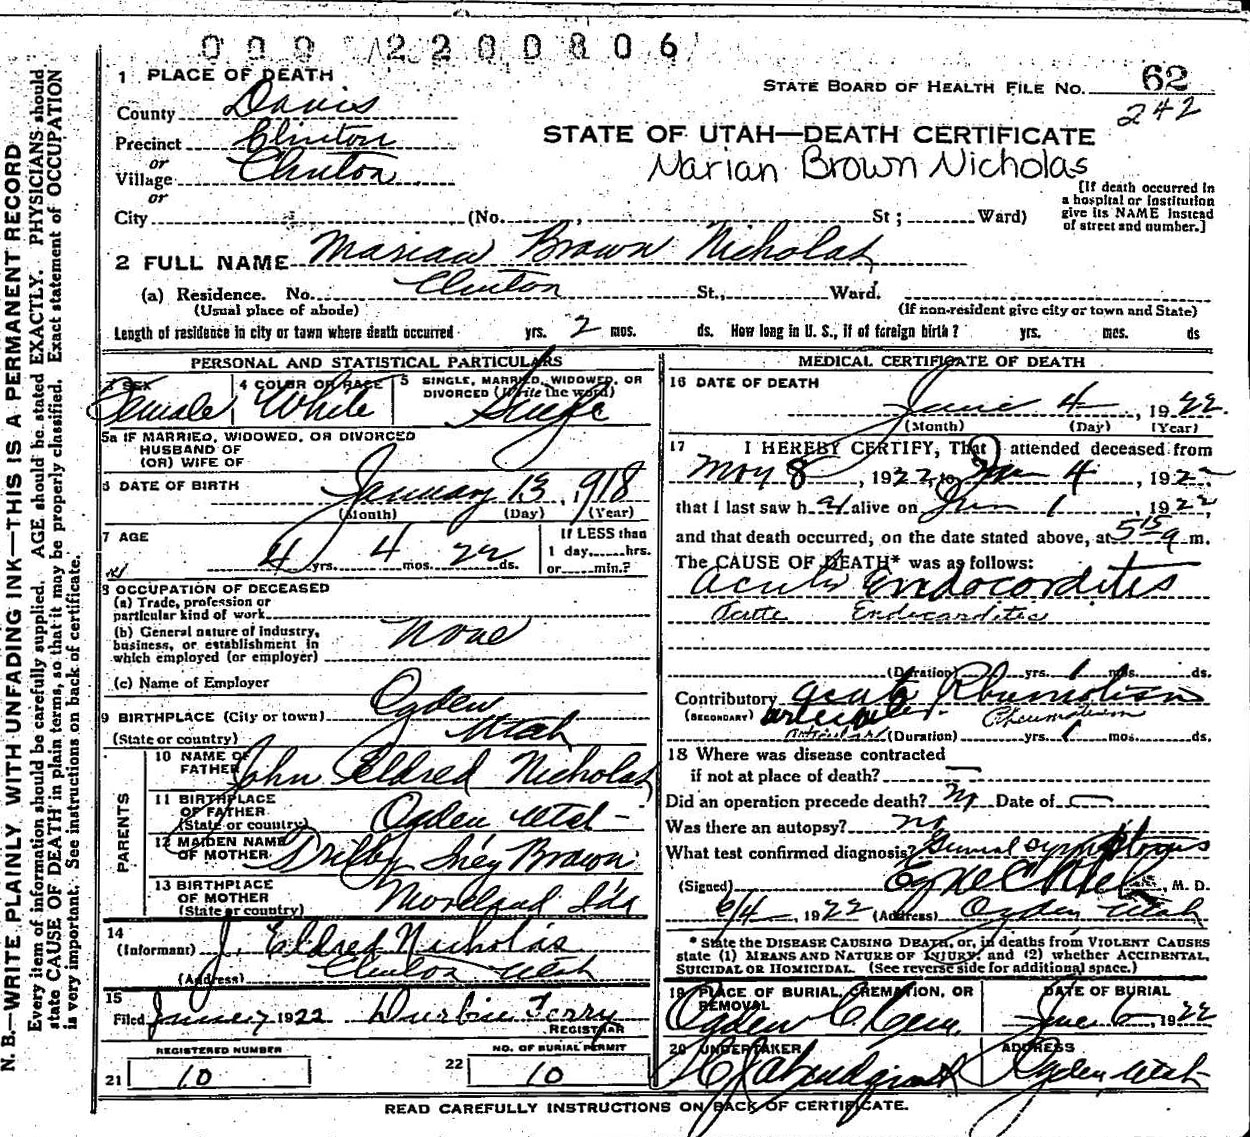 000 2200806
1 PLACE OF DEATH
STATE BOARD OF HEALTH FILE NO. 62
242
County Davis
Precinct Clinton
or
Village Clinton
or
STATE OF UTAH—DEATH CERTIFICATE
Marian Brown Nicholas
[If death occurred in
a hospital or institution
give its NAME instead
of street and number.]
City (No. , St ; Ward)
2 FULL NAME Marian Brown Nicholas
(a) Residence. No. Clinton St., Ward.
(Usual place of abode) (If non-resident give city or town and State)
Length of residence in city or town where death occurred yrs. 2 mos. ds. How long in U. S., if of foreign birth? yrs. mos. ds
PERSONAL AND STATISTICAL PARTICULARS
3 SEX 4 COLOR OR RACE 5 SINGLE, MARRIED, WIDOWED, OR
DIVORCED (Write the word)
Female White Single
5a IF MARRIED, WIDOWED, OR DIVORCED
HUSBAND OF
(OR) WIFE OF
6 DATE OF BIRTH January 13, 1918
(Month) (Day) (Year)
7 AGE If LESS than
4 yrs. 4 mos. 22 ds. 1 day, hrs.
or min.?
8 OCCUPATION OF DECEASED
(a) Trade, profession or
particular kind of work
(b) General nature of industry,
business, or establishment in
which employed (or employer) None
(c) Name of Employer
9 BIRTHPLACE (City or town) Ogden
(State or country) Utah
PARENTS
10 NAME OF
FATHER John Eldred Nicholas
11 BIRTHPLACE
OF FATHER
(State or country) Ogden Utah
12 MAIDEN NAME
OF MOTHER Inez Brown
13 BIRTHPLACE
OF MOTHER
(State or country) Moreland Ida
14
(Informant) J. Eldred Nicholas
(Address) Clinton Utah
15
Filed June 7 1922 Terry
REGISTRAR
REGISTERED NUMBER NO. OF BURIAL PERMIT
21 10 22 10
MEDICAL CERTIFICATE OF DEATH
16 DATE OF DEATH
June 4, 1922
(Month) (Day) (Year)
17 I HEREBY CERTIFY, That I attended deceased from
May 8, 1922, to June 4, 1922
that I last saw h alive on Jun 1, 1922,
and that death occurred, on the date stated above, at 5 15 a m.
The CAUSE OF DEATH* was as follows:
Acute Endocordites
Acute Endocardites
(Duration) yrs. 1 mos. ds.
Contributory Acute Rhumotism
(SECONDARY) Articular Rheumatism
Articular (Duration) yrs. 1 mos. ds.
18 Where was disease contracted
if not at place of death? —
Did an operation precede death? No Date of —
Was there an autopsy? No
What test confirmed diagnosis? symptoms
(Signed) , M. D.
6/4, 1922 (Address) Ogden Utah
* State the DISEASE CAUSING DEATH, or, in deaths from VIOLENT CAUSES
state (1) MEANS AND NATURE OF INJURY; and (2) whether ACCIDENTAL,
SUICIDAL OR HOMICIDAL. (See reverse side for additional space.)
19 PLACE OF BURIAL, CREMATION, OR DATE OF BURIAL
REMOVAL
Ogden C Cem. June 6, 1922
20 UNDERTAKER ADDRESS
Ogden Utah
READ CAREFULLY INSTRUCTIONS ON BACK OF CERTIFICATE.
N. B.—WRITE PLAINLY WITH UNFADING INK—THIS IS A PERMANENT RECORD
Every item of information should be carefully supplied. AGE should be stated EXACTLY. PHYSICIANS should
state CAUSE OF DEATH in plain terms, so that it may be properly classified. Exact statement of OCCUPATION
is very important. See instructions on back of certificate.